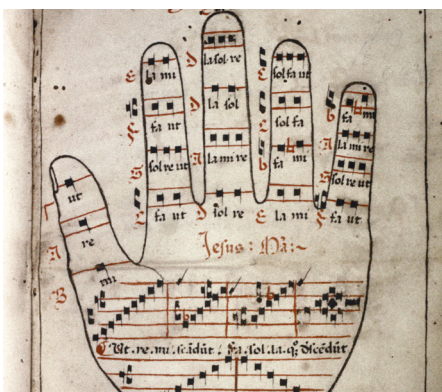 Γ ut
A re
B mi
E la mi
fa ut
G sol re ut
C fa ut
D la sol re
D la sol
A la mi re
D sol re
sol fa ut
C sol fa
b fa mi
E la mi
b fa mi
A la mi re
G sol re ut
F fa ut
Jesus : Ma :~
Ut. re. mi. scādūt / fa. sol. la. q; discēdūt